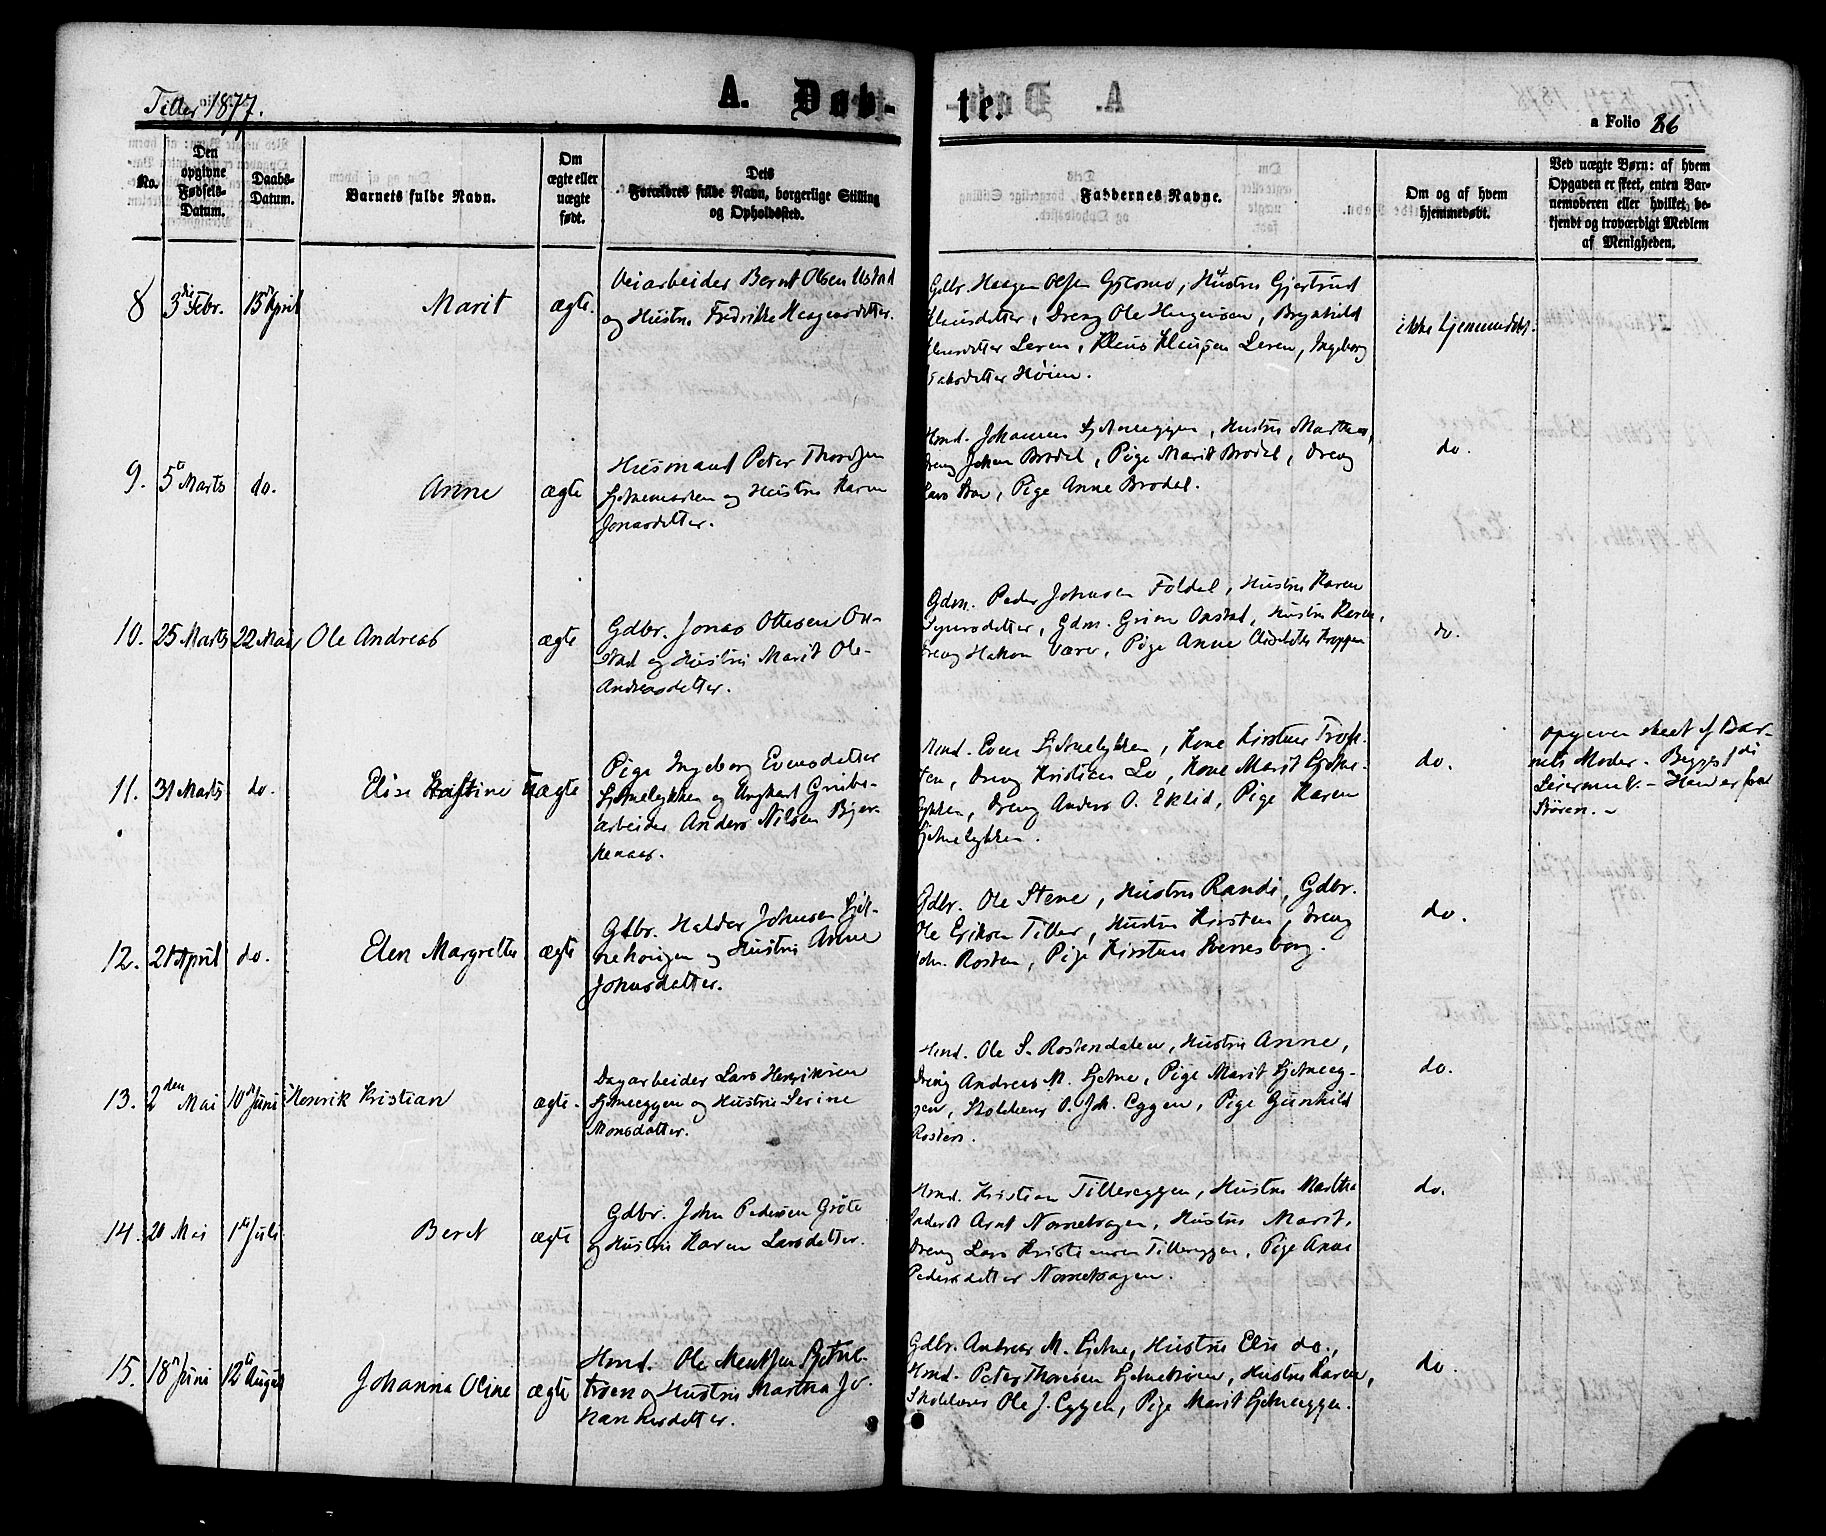 Tiller 1877.
A. Døb-
te.
a Folio 26
No.
Den opgivne Fødsels-Datum.
Daabs-Datum.
Barnets fulde Navn.
Om ægte eller uægte født.
Dets Forældres fulde Navn, borgerlige Stilling og Opholdssted.
Faddernes Navne.
Om og af hvem hjemmedøbt.
Ved uægte Børn: af hvem Opgaven er skeet, enten Barnemoderen eller hvilket, bekjendt og troværdigt Medlem af Menigheden.
8 3die Febr. 15de April Marit ægte.
Veiarbeider Bernt Olsen Ustad
og Hustru Fredrikke Haagensdetter.
Gdbr. Haagen Olsen, Hustru Gjertrud
Klausdetter, Dreng Ole Haagensen, Brynhild
Klausdetter Leren, Klaus Klausen Leren, Ingeborg
Høiem.
ikke hjemmedøbt.
9. 5te Marts do. Anne ægte
Husmand Peter Thoresen
Sjetnemarken og Hustru Karen
Jonasdetter.
Hmd. Johannes Sjetneeggen, Hustru Martha,
Dreng Johan Brødel, Pige Marit Brødel, Dreng
Lars, Pige Anne Brødel.
do.
10. 25 Marts 22 Mai Ole Andreas ægte
Gdbr. Jonas Ottesen On-
stad og Hustru Marit Ole-
Andreasdetter.
Gdm. Peder Johnsen Foldal, Hustru Karen
Gdm. Grim Onstad, Hustru Karen,
Dreng Hakon Være, Pige Anne Kroppen
do.
11. 31 Marts do. Elise Kristine Uægte
Pige Ingeborg Evensdetter
Sjetneløkken og Ungkarl Grube-
arbeider Anders Nilsen Bjer-
kenaas.
Hmd. Even Sjetneløkken, Kone Kirstine
Dreng Kristian Lo, Kone Marit Sjetne-
løkken, Dreng Anders O. Eklid, Pige Karen
Sjetneløkken.
do.
opgiven skeet af Bar-
nets Moder. Begges 1ste
Leiermaal. - Han er fra
Støren. -
12. 21 April do. Elen Margrethe ægte
Gdbr. Haldor Johnsen Sjet-
nehaugen og Hustru Anne
Johnsdatter.
Gdbr. Ole Stene, Hustru Randi, Gdbr.
Ole Eriksen Tiller, Hustru Kirsten, Dreng
Joh. Rosten, Pige Kirstine Svenesborg.
do.
13. 2den Mai 10de Juni Henrik Kristian ægte.
Dagarbeider Lars Henriksen
Sjetneeggen og Hustru Serine
Monsdatter.
Hmd. Ole S. Rostendalen, Hustru Anne,
Dreng Andreas M. Sjetne, Pige Marit Sjetneeg-
gen, Skolelærer O. Joh. Eggen, Pige Gunhild
Rosten.
do.
14. 20 Mai 1ste Juli Beret ægte
Gdbr. John Pedersen Grøte
og Hustru Karen Larsdetter.
Hmd. Kristian Tillereggen, Hustru Martha
Inderst Arnt Nornetvagen, Hustru Marit,
Dreng Lars Kristiansen Tillereggen, Pige Anne
Pedersdetter Nornetvagen.
do.
15. 18de Juni 12te August Johanna Oline ægte
Hmd. Ole Mentsen Sjetne-
trøen og Hustru Martha Jo-
hannesdetter.
Gdbr. Andreas M. Sjetne, Hustru Elen do.,
Hmd. Peter Thoresen Sjetnetrøen, Hustru Karen,
Skolelærer Ole J. Eggen, Pige Marit Sjetneeggen.
do.